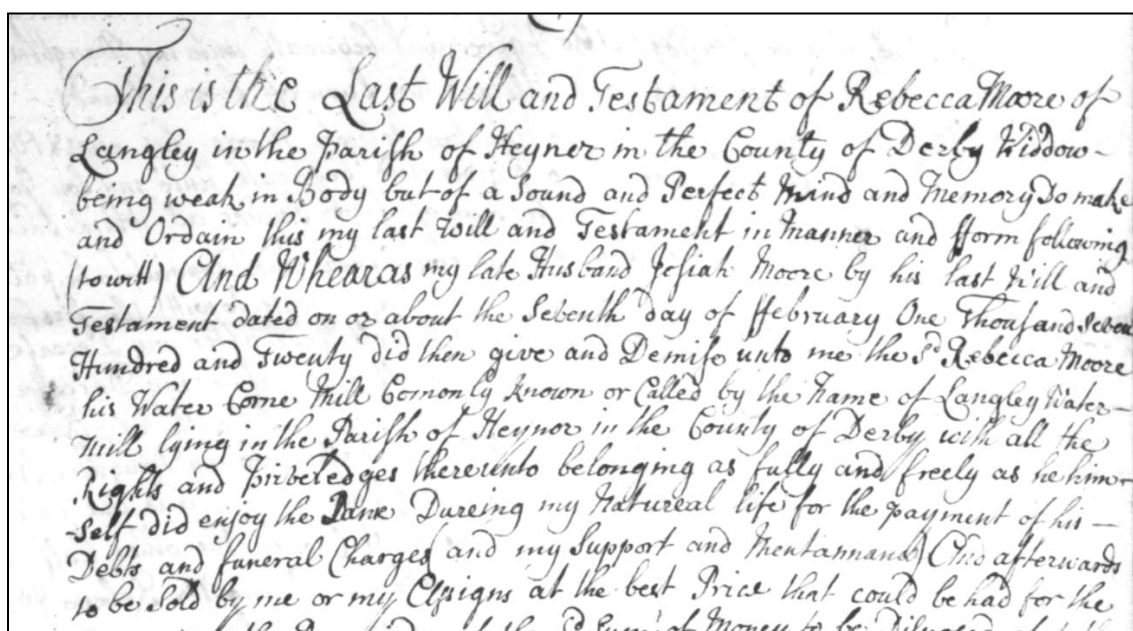 This is the Last Will and Testament of Rebecca Moore of
Langley in the Parish of Heyner in the County of Derby Widdow -
being weak in Body but of a Sound and Perfect Mind and Memory Do make
and Ordain this my last Will and Testament in Manner and fform following
(to witt) And Whearas my late Husband Josiah Moore by his last Will and
Testament dated on or about the Seventh day of ffebruary One Thousand Seven
Hundred and Twenty did then give and Demise unto me the sd Rebecca Moore
his Water Corne Mill Comonly known or Called by the Name of Langley Water -
Mill lying in the Parish of Heynor in the County of Derby with all the
Rights and Priveledges thereunto belonging as fully and freely as he him -
Self did enjoy the Same Dureing my Natureal life for the payment of his -
Debts and funeral Charges (and my Support and Mentannana) And afterwards
to be Sold by me or my Assigns at the best Price that could be had for the
Sum of Money to be